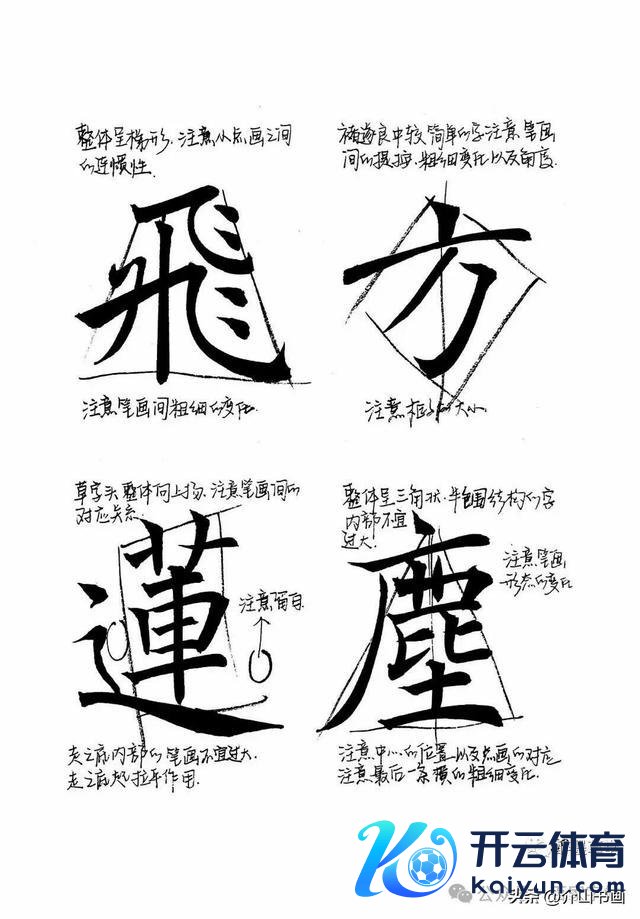 整体呈梯形，注意小点画之间
的连惯性
褚遂良中较简单的字注意笔画
间的摆放，粗细变化以及角度
飛
方
注意笔画间粗细的变化
注意框子的大小
草字头整体向上扬，注意笔画间的
对应关系
整体呈三角状，半包围结构的字
内部不宜
过大
蓮
注意留白
塵
注意笔画
形态的变化
走之底内部的笔画不宜过大
走之底起拉平作用
注意中心的位置以及点画的对应
注意最后一条横的粗细变化
开云体育
kaiyun.com
头条 @介山书画